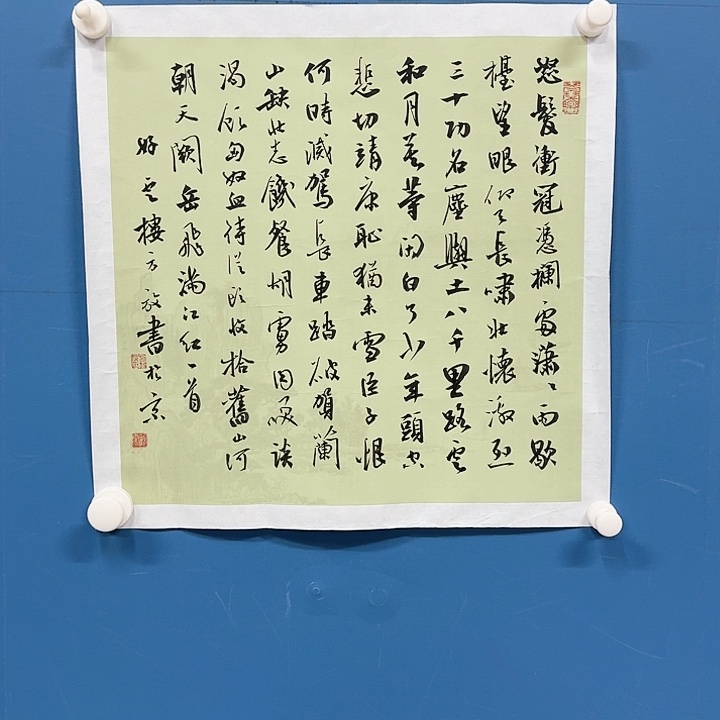 怒髮衝冠憑欄處瀟瀟雨歇
擡望眼仰天長嘯壯懷激烈
三十功名塵與土八千里路雲
和月莫等閑白了少年頭空
悲切靖康恥猶未雪臣子恨
何時滅駕長車踏破賀蘭
山缺壯志饑餐胡虜肉笑談
渴飲匈奴血待從頭收拾舊山河
朝天闕岳飛滿江紅一首
好雲樓方放書於京